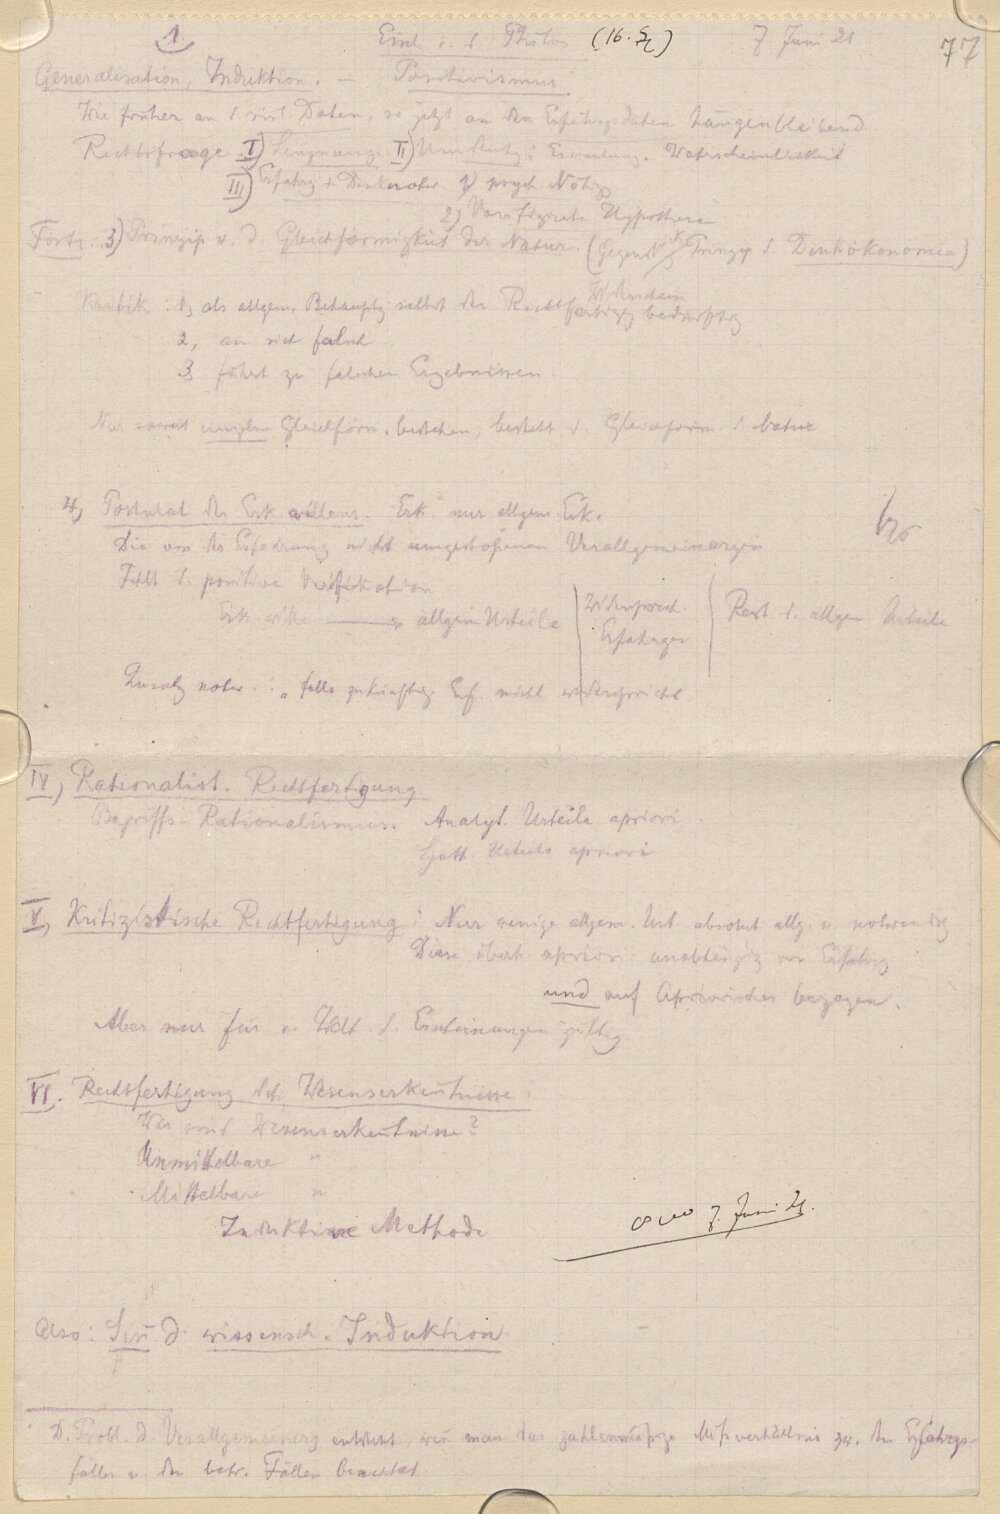 1 Einl. i. d. Philos (16. St) 7 Juni 21 77
Generalisation, Induktion. — Positivismus.
Wie früher an d. sinl. Daten, so jetzt an den Erfahrgsdaten hängenbleibend
Rechtsfrage I) Leugnung II) Umdeutg: Erwartung. Wahrscheinlichkeit
III) Erfahrg + Denknotw. 1) psych. Nötigg
2) Verifizierte Hypothesen
Forts. 3) Prinzip v. d. Gleichförmigkeit der Natur (Gegens. Prinzip d. Denkökonomie)
Kritik: 1, als allgem. Behauptg selbst der Rechtfertigg bedürftig
2, an sich falsch
3, führt zu falschen Ergebnissen.
Nur soweit einzelne Gleichförm. bestehen, besteht d. Gleichförm. d. Natur
4, Postulat des Erk.willens. Erk. nur allgem. Erk.
Die von der Erfahrung nicht umgestoßenen Verallgemeinergn
Fehlt d. positive Verifikation
Erk. wille → allgem Urteile Widersprech. Erfahrgen Rest d. allgem Urteile
Zusatz notw.: falls zukünftig. Erf. nicht widerspricht
IV, Rationalist. Rechtfertigung
Begriffs-Rationalismus. Analyt. Urteile apriori
Synth. Urteile apriori
V, Kritizistische Rechtfertigung: Nur wenige allgem. Urt. absolut allg. u. notwendig
Diese überh. apriori: unabhängig von Erfahrg
und auf Apriorisches bezogen.
Aber nur für d. Welt d. Erscheinungen gültig
VI. Rechtfertigung dch. Wesenserkentnisse.
Was sind Wesenserkentnisse?
Unmittelbare "
Mittelbare "
Induktive Methode
7. Juni 21.
Also: Sin d. wissensch. Induktion
D. Probl. d. Verallgemeinerg entsteht, wen man das zahlenmäßige Mißverhältnis zw. den Erfahrgs-
fällen u. den betr. Fällen beachtet